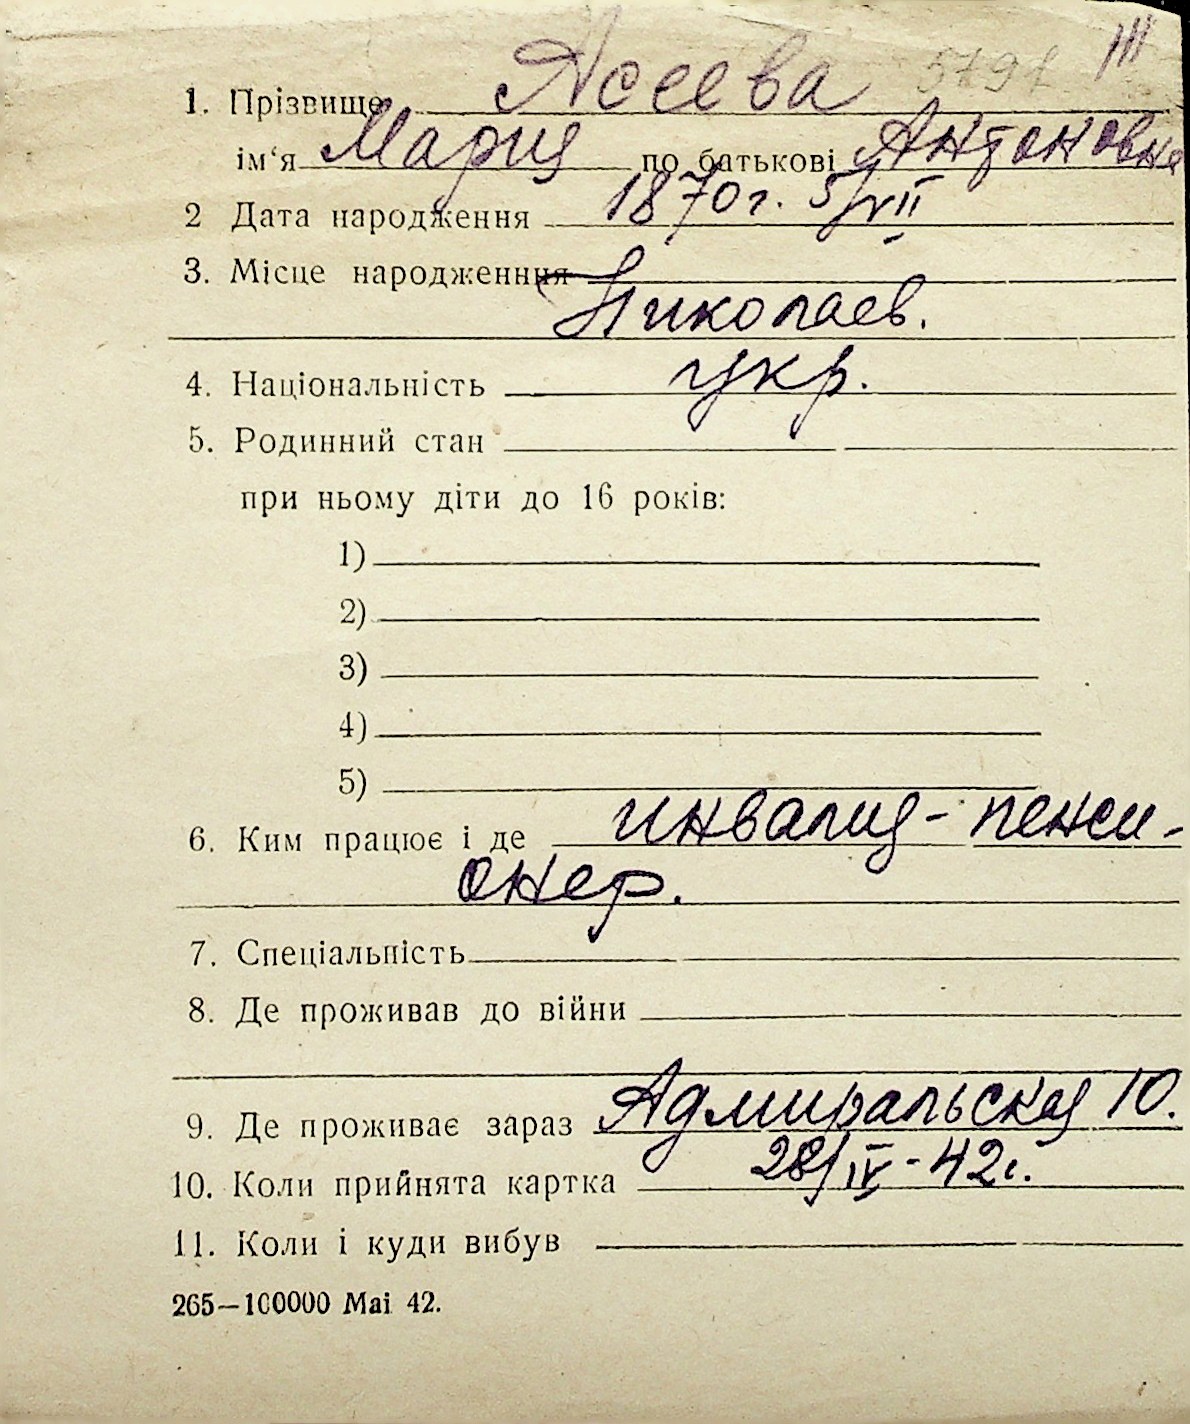 5791 III
1. Прізвище Асеева
ім‘я Мария по батькові Антоновна
2 Дата народження 1870г. 5/VII
3. Місце народженння
Николаев.
4. Національність укр.
5. Родинний стан
при ньому діти до 16 років:
1)
2)
3)
4)
5)
6. Ким працює і де инвалид- пенси-
онер.
7. Спеціальність
8. Де проживав до війни
9. Де проживає зараз Адмиральская 10.
10. Коли прийнята картка 28/IV-42г.
11. Коли і куди вибув
265—100000 Mai 42.